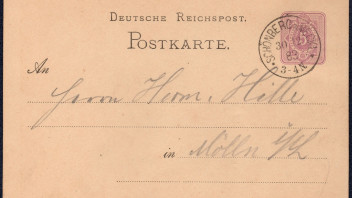 DEUTSCHE REICHSPOST.
POSTKARTE.
SCHÖNBERG
30
83
3-4N
5
An
Herrn Herm. Hille
in Mölln i/L